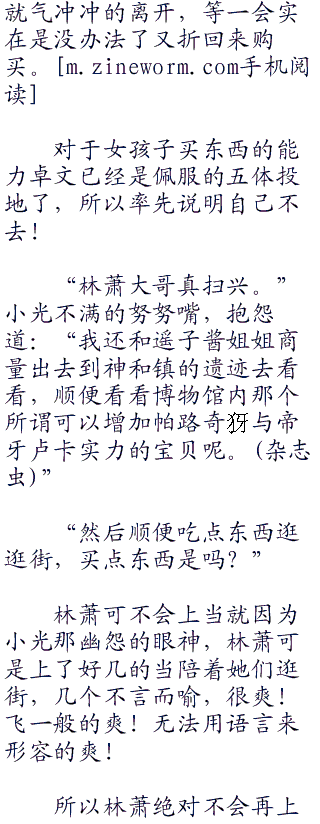 就气冲冲的离开，等一会实
在是没办法了又折回来购
买。[m.zineworm.com手机阅
读]
对于女孩子买东西的能
力卓文已经是佩服的五体投
地了，所以率先说明自己不
去！
“林萧大哥真扫兴。”
小光不满的努努嘴，抱怨
道：“我还和遥子酱姐姐商
量出去到神和镇的遗迹去看
看，顺便看看博物馆内那个
所谓可以增加帕路奇犽与帝
牙卢卡实力的宝贝呢。(杂志
虫)”
“然后顺便吃点东西逛
逛街，买点东西是吗？”
林萧可不会上当就因为
小光那幽怨的眼神，林萧可
是上了好几的当陪着她们逛
街，几个不言而喻，很爽！
飞一般的爽！无法用语言来
形容的爽！
所以林萧绝对不会再上